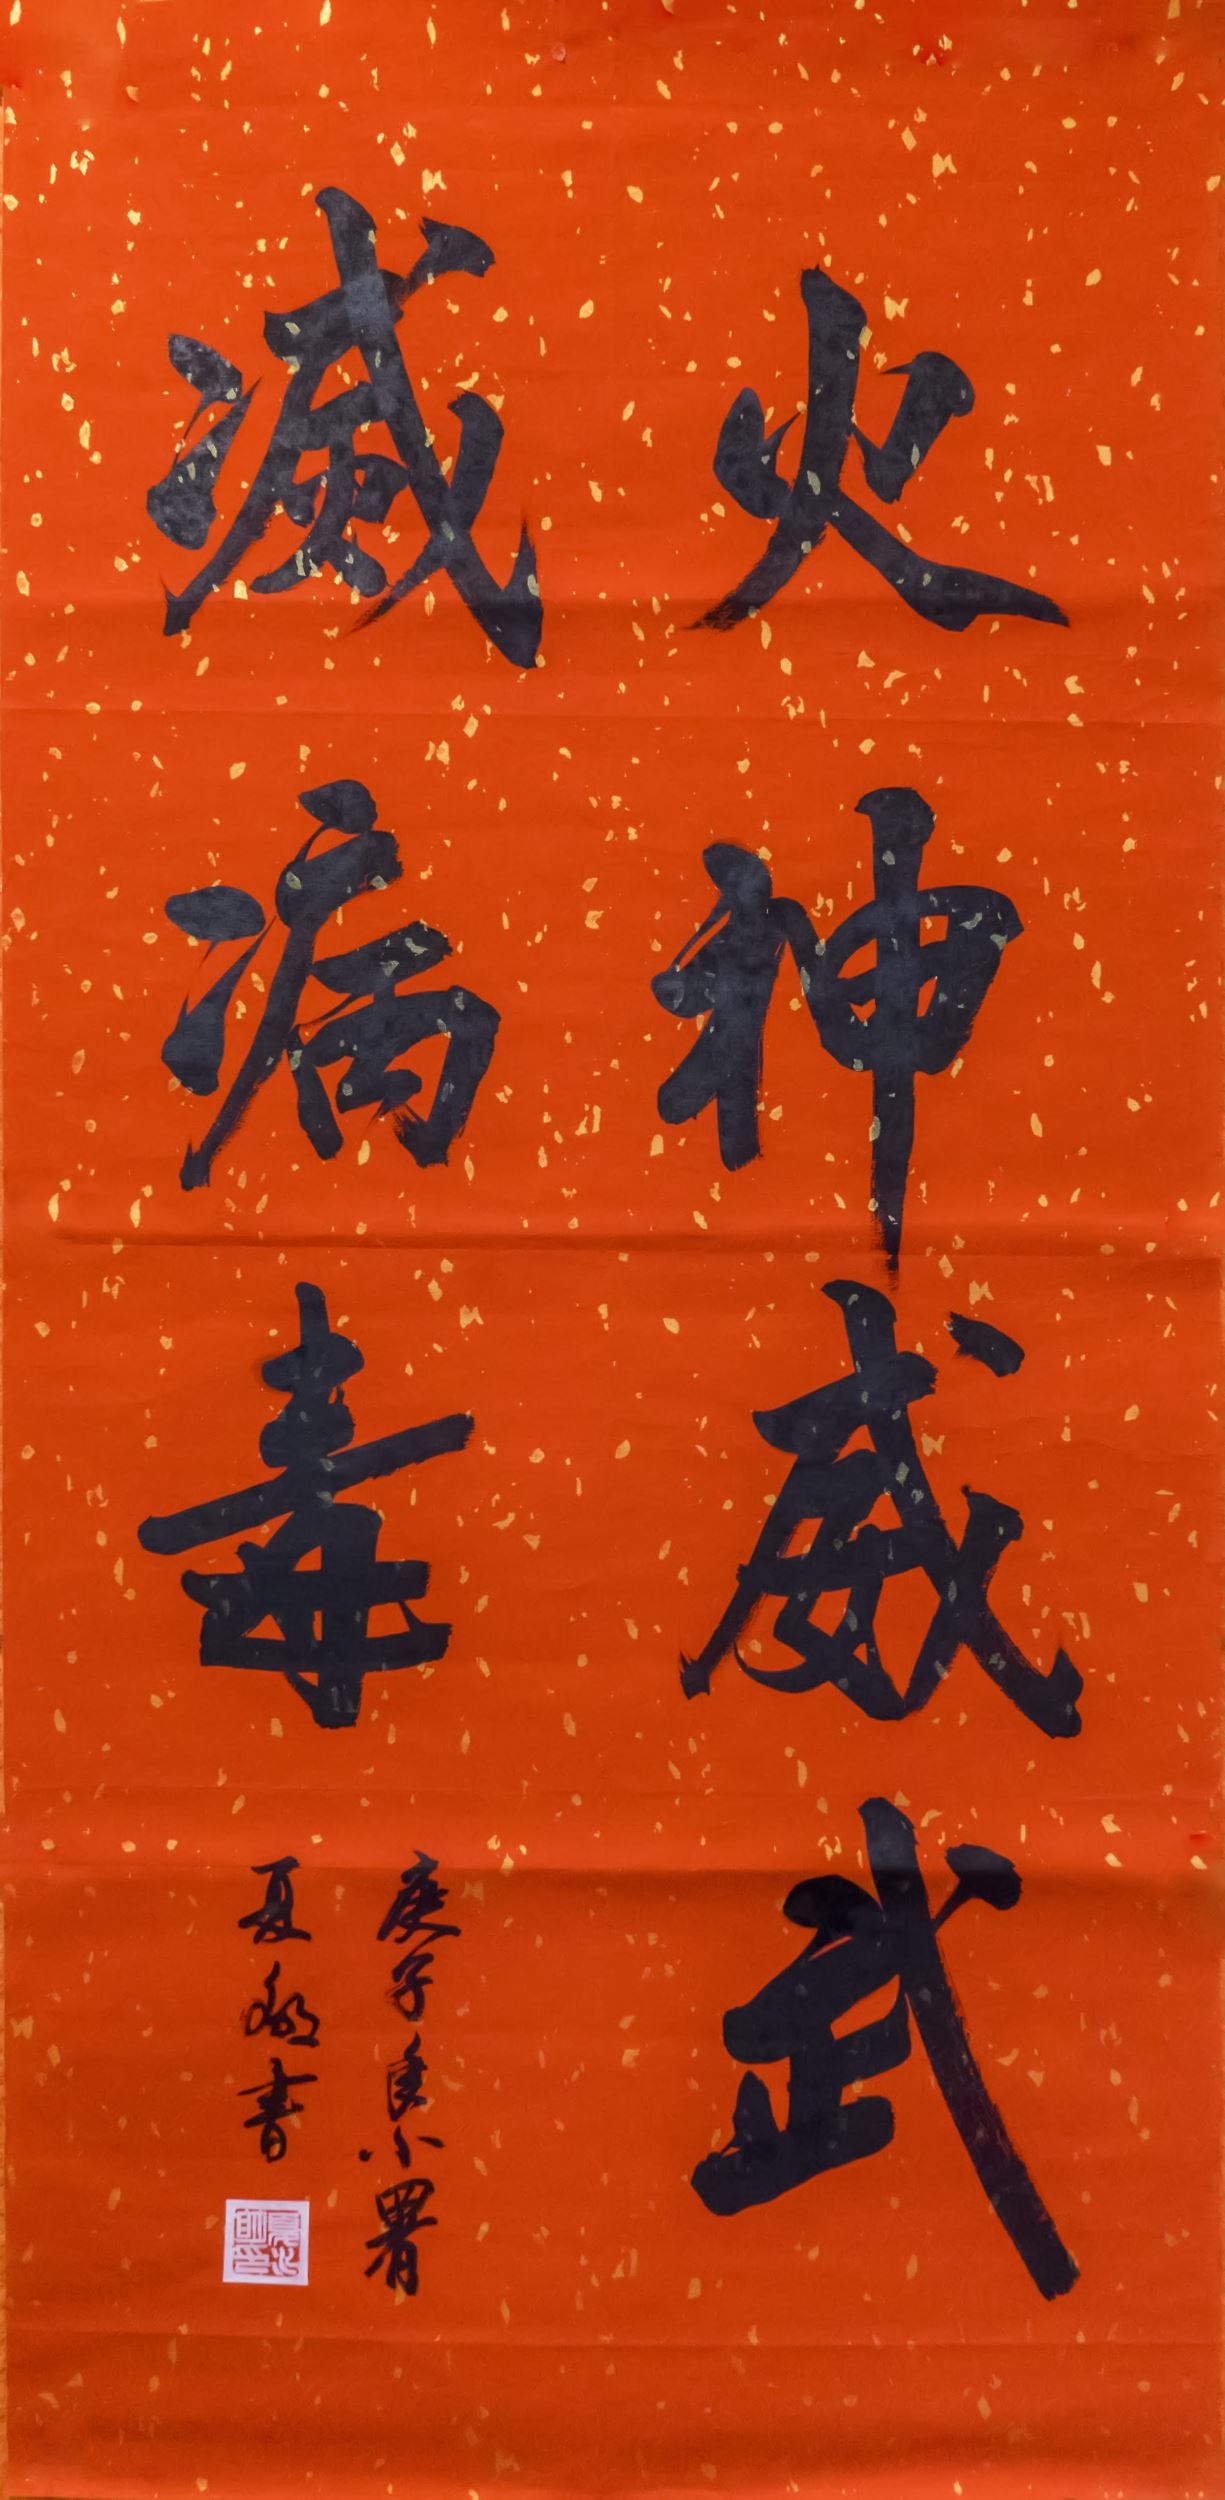 火神威武
滅病毒
庚子年小署
夏 書